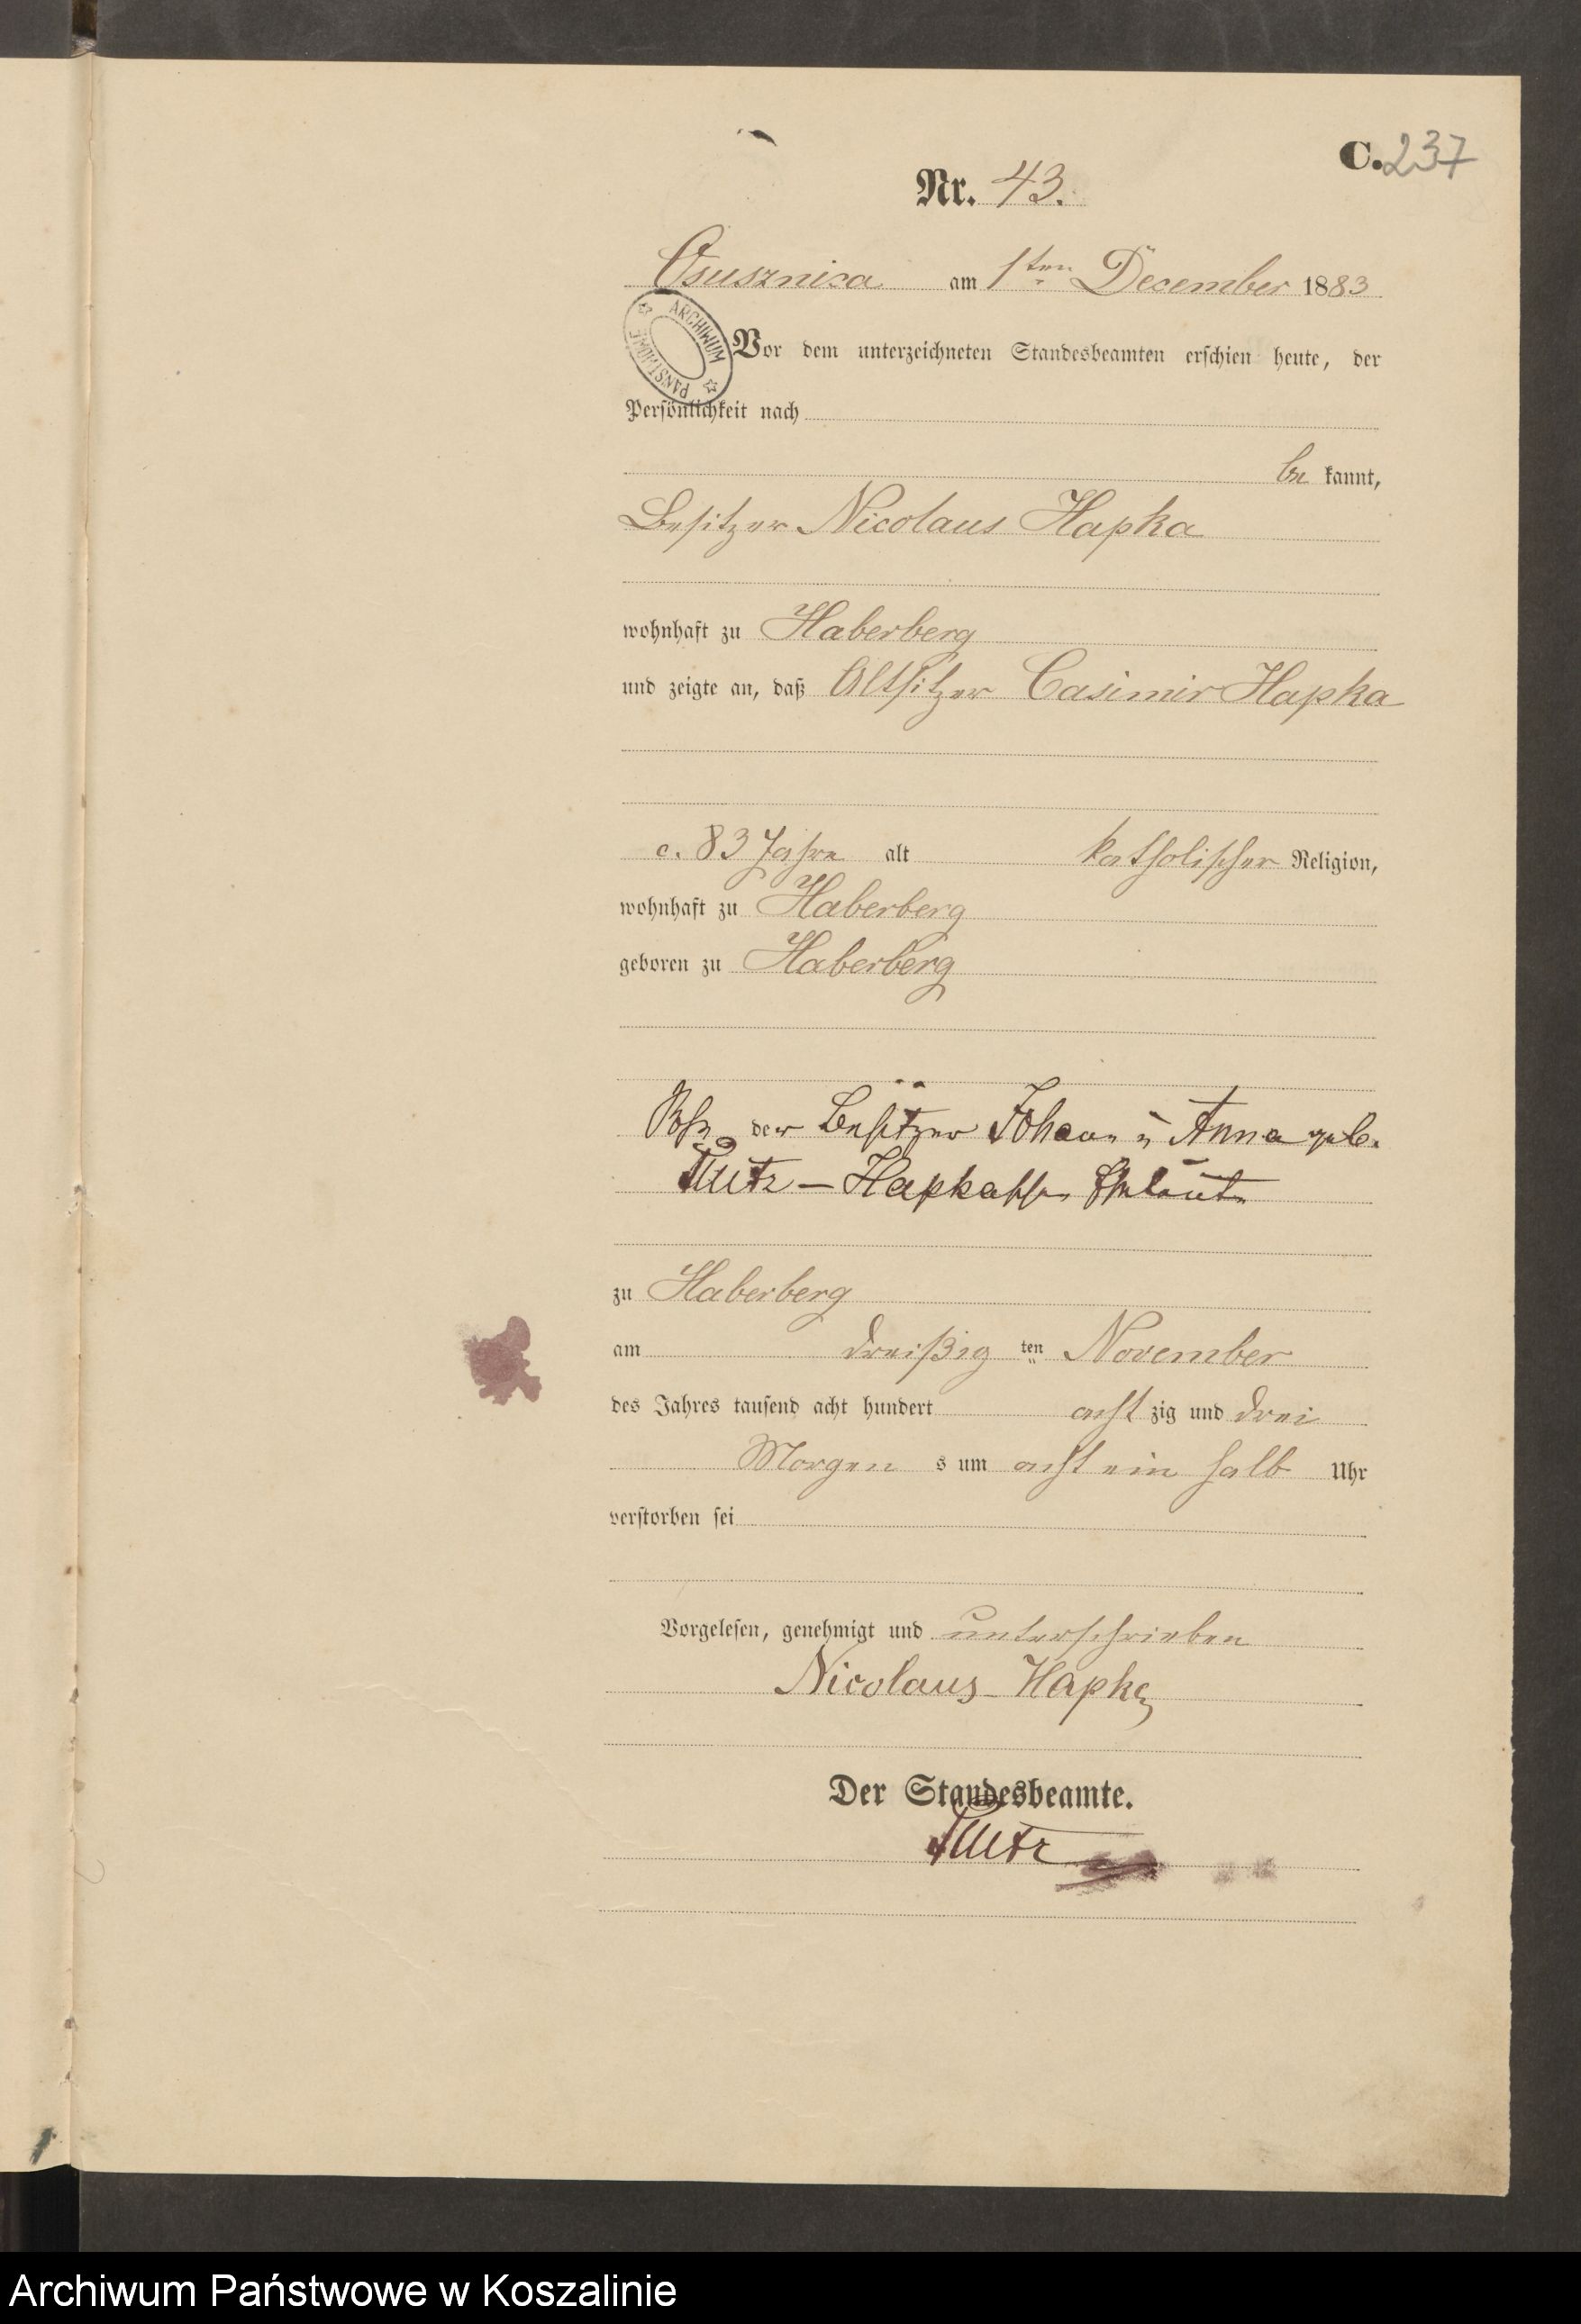 C. 237
Nr. 43.
Osusznica am 1ten December 1883
ARCHIWUM PAŃSTWOWE
Vor dem unterzeichneten Standesbeamten erschien heute, der
Persönlichkeit nach
be kannt,
Besitzer Nicolaus Hapka
wohnhaft zu Haberberg
und zeigte an, daß Altsitzer Casimir Hapka
c. 83 Jahre alt katholischer Religion,
wohnhaft zu Haberberg
geboren zu Haberberg
der Besitzer Johann u Anna geb.
Hapkaschen Eheleute
zu Haberberg
am dreißig ten November
des Jahres tausend acht hundert acht zig und drei
Morgen s um acht ein halb Uhr
verstorben sei
Vorgelesen, genehmigt und unterschrieben
Nicolaus Hapka
Der Standesbeamte.
Archiwum Państwowe w Koszalinie